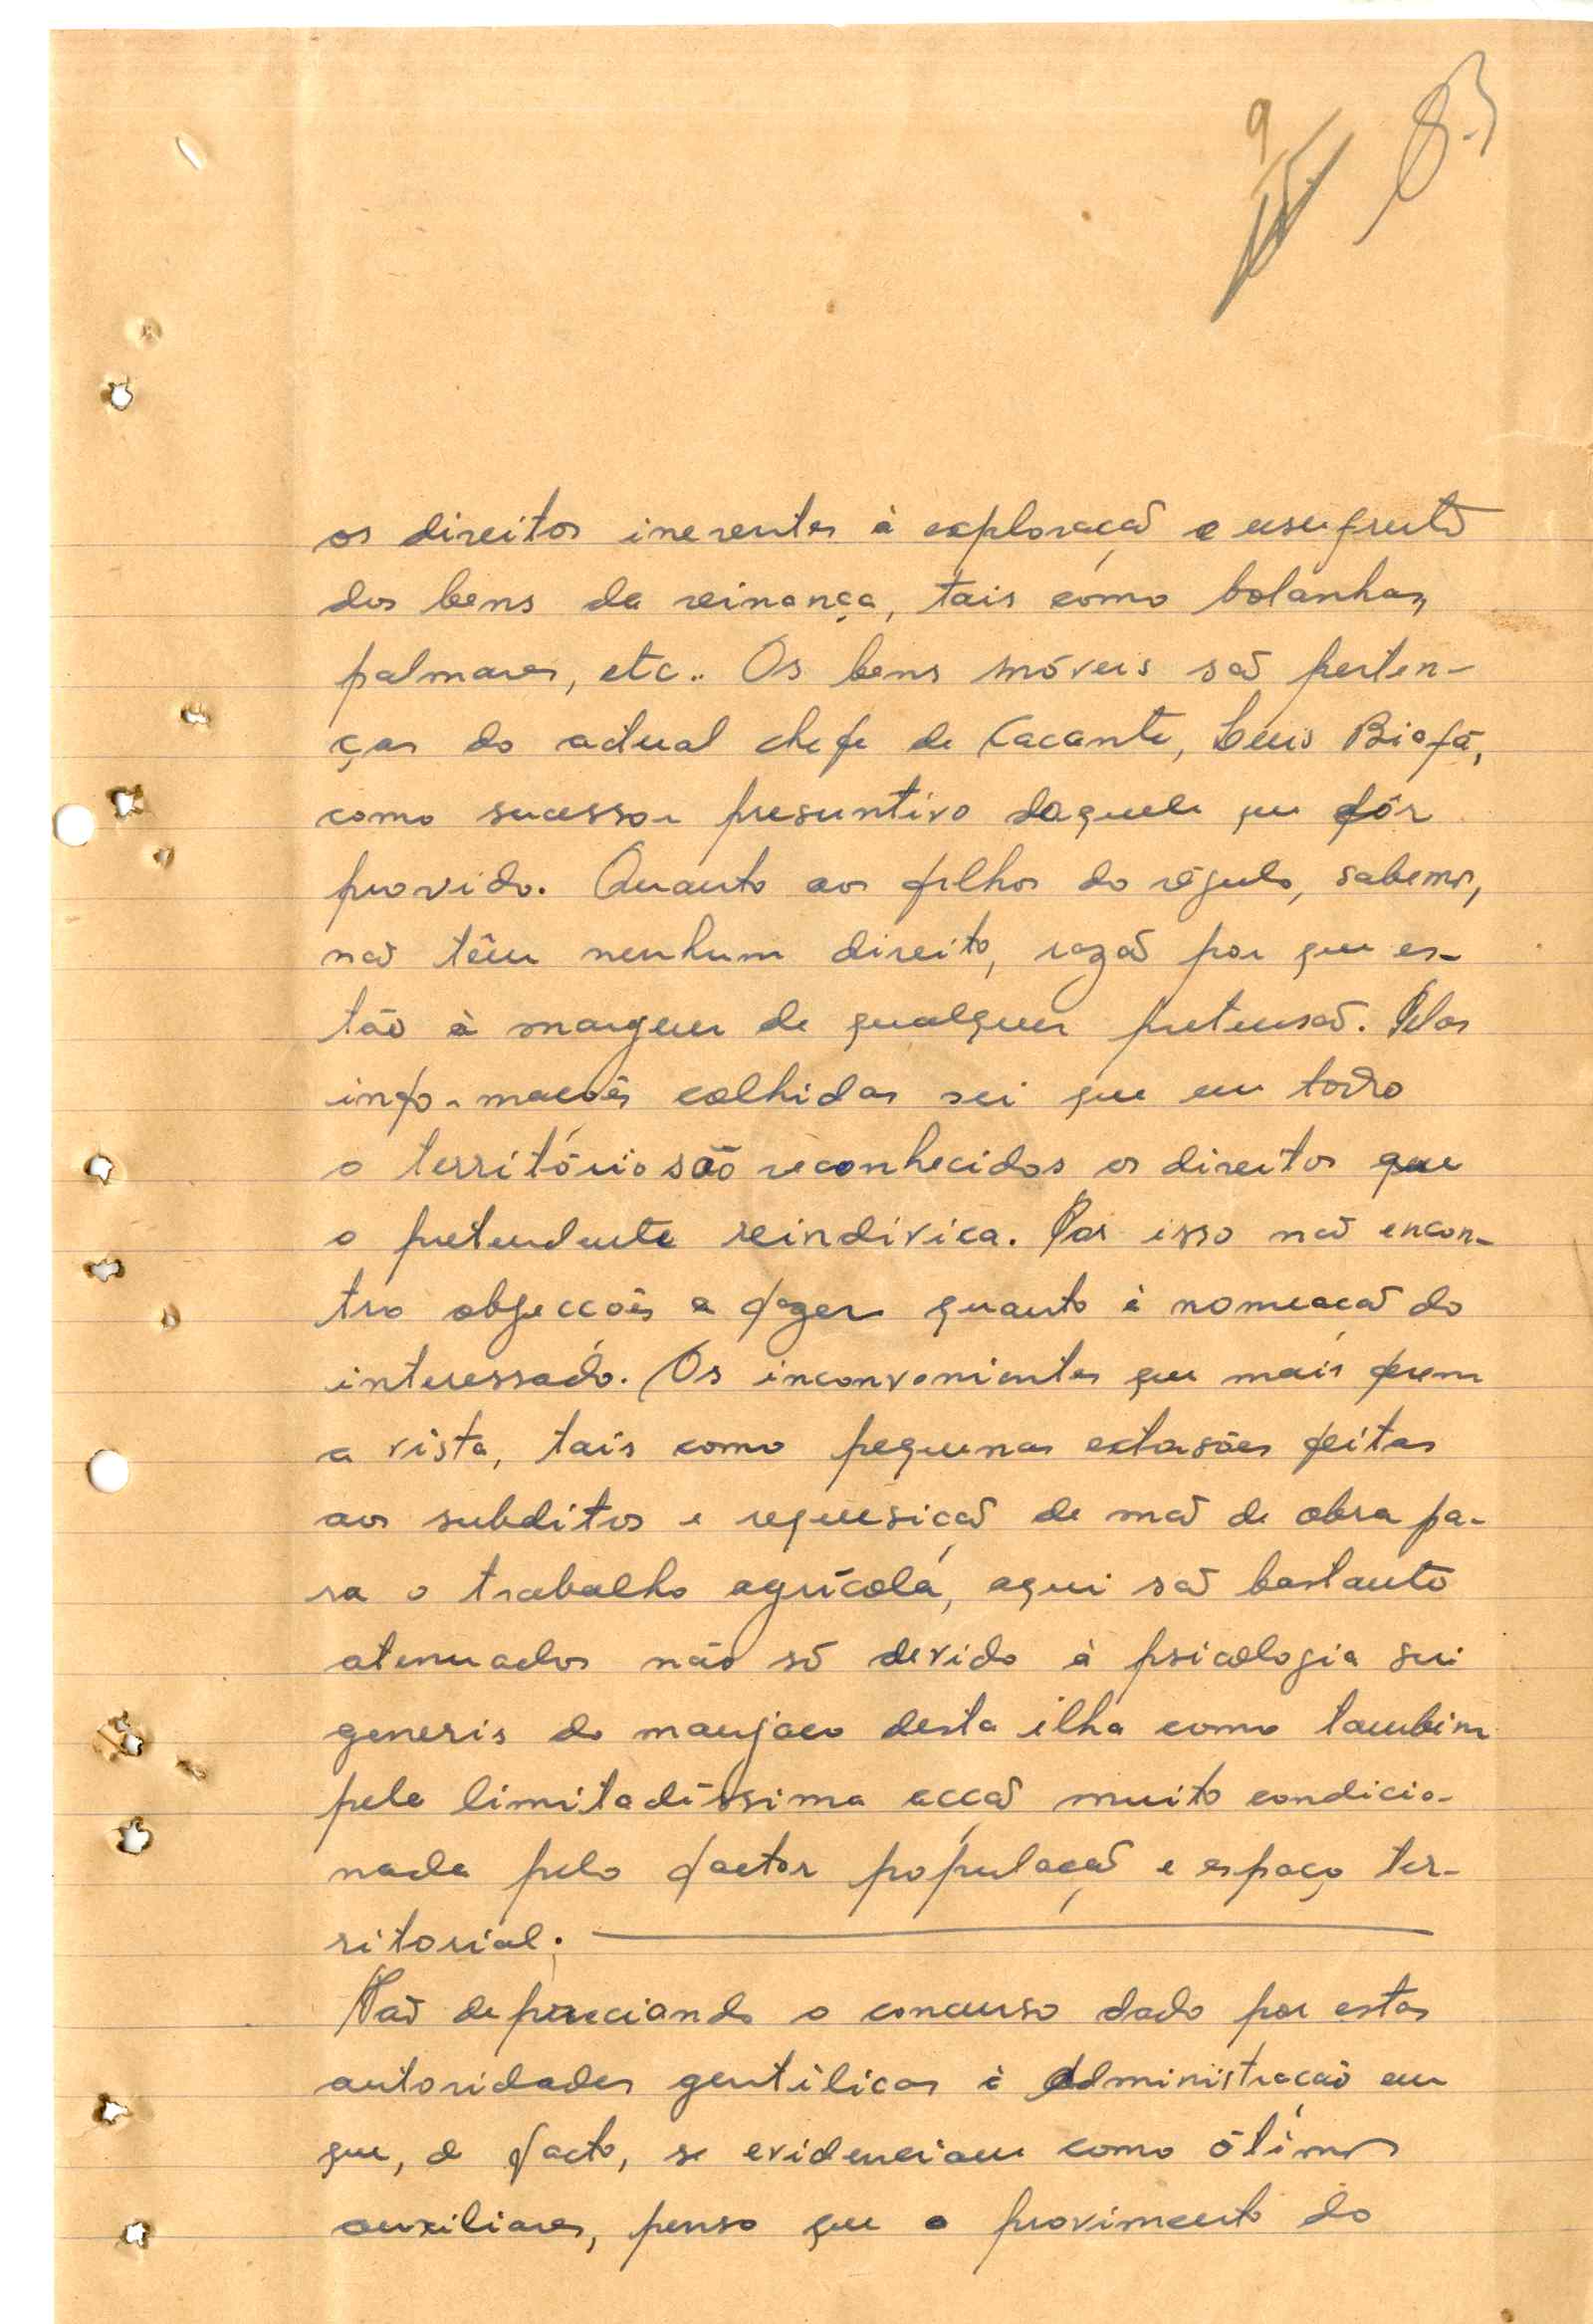 9
83
os direitos inerentes à exploração e usufruto
dos bens da reinança, tais como bolanhas,
palmares, etc.. Os bens móveis são perten-
ças do actual chefe de Cacante, Luis Biofá,
como sucessor presuntivo daquele que fôr
provido. Quanto aos filhos do régulo, sabemos,
não têm nenhum direito, razão por que es-
tão à margem de qualquer pretensão. Pelas
informações colhidas sei que em todo
o território são reconhecidos os direitos que
o pretendente reindivica. Por isso não encon-
tro objecções a fazer quanto à nomeação do
interessado. Os inconvenientes que mais ferem
a vista, tais como pequenas extorsões feitas
aos subditos e requisição de mão de obra pa-
ra o trabalho agrícola, aqui são bastante
atenuados não só devido à psicologia sui
generis do manjaco desta ilha como também
pela limitadíssima acção muito condicio-
nada pelo factor população e espaço ter-
ritorial.
Não depreciando o concurso dado por estas
autoridades gentílicas à Administração em
que, de facto, se evidenciam como ótimos
auxiliares, penso que o provimento do